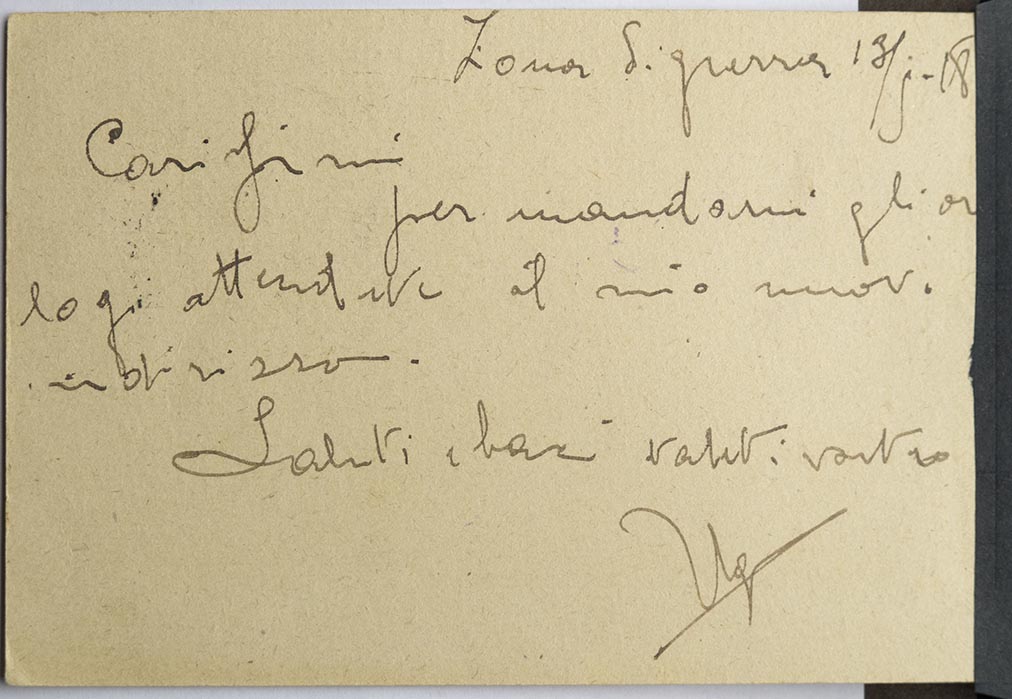 Zona di guerra 13/1-18
Carissimi
per mandarmi gli or
logi attendete il mio nuov.
indirizzo.
Saluti e baci
vostro
Ugo